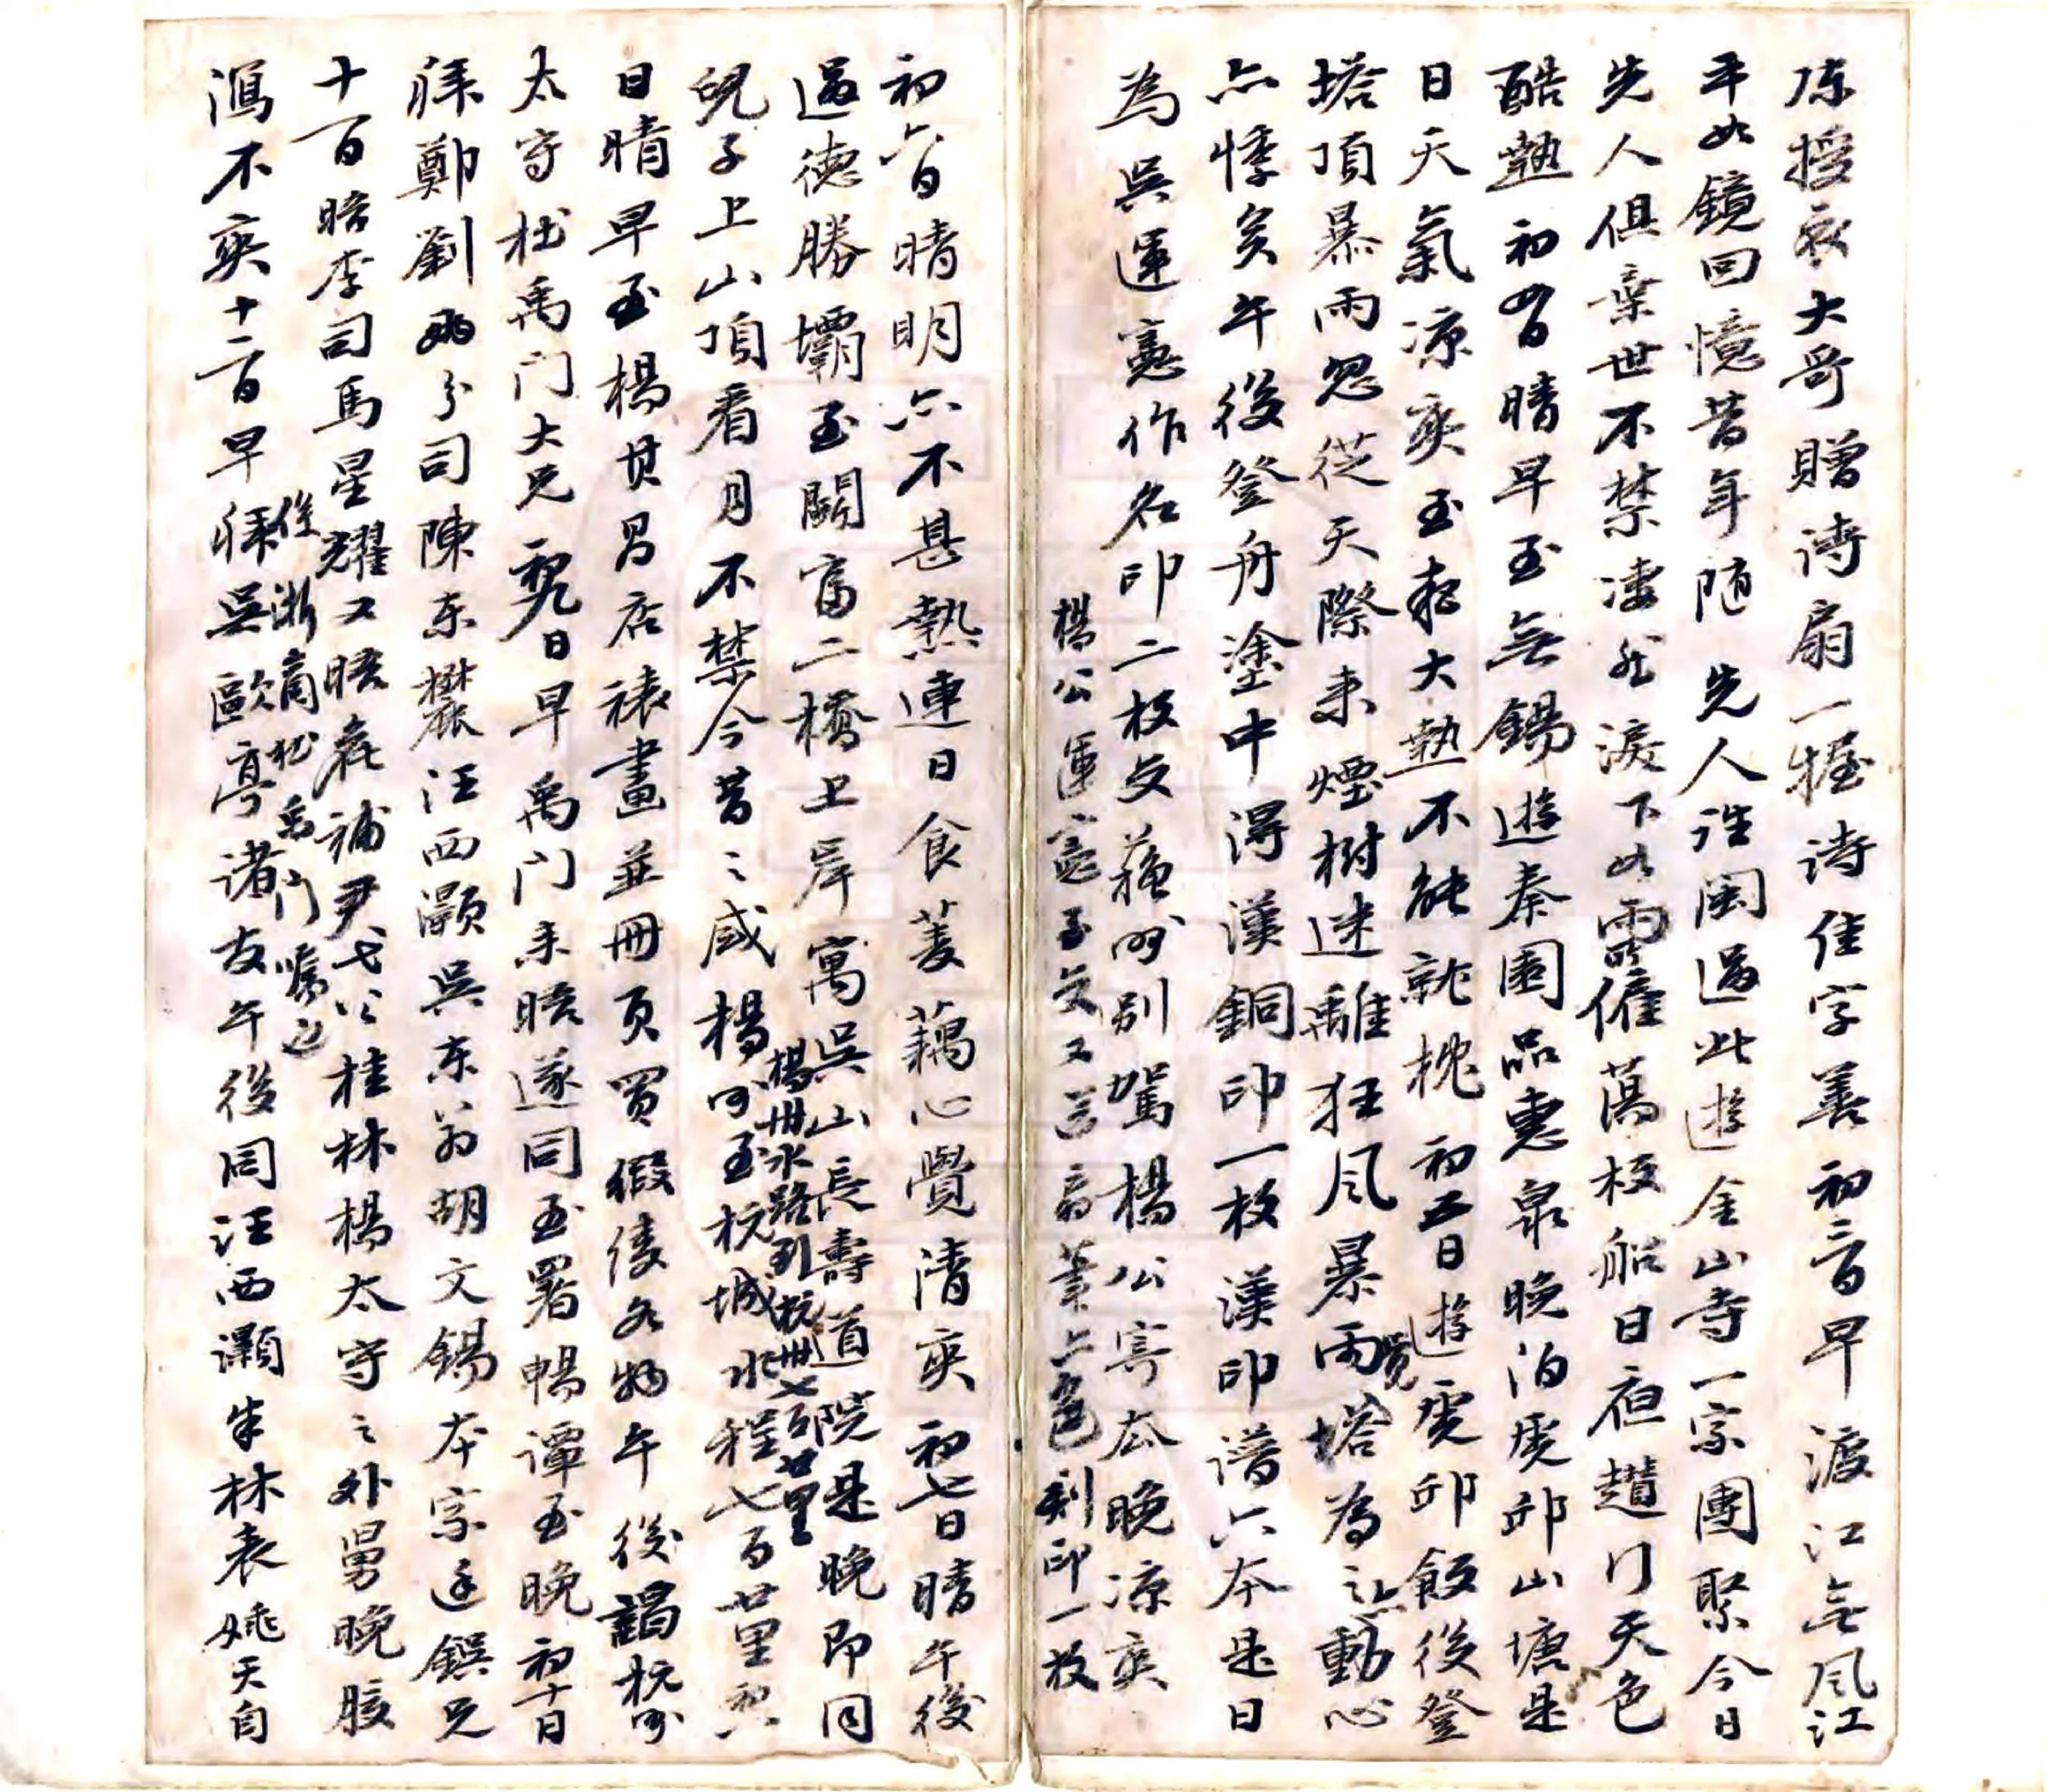 陈授衣大哥贈诗扇一握诗佳字善初三日早渡江無風江
平如鏡回憶昔年随先人詣閩過此遊金山寺一家團聚今日
先人俱棄世不禁凄然淚下如雷僱萬枝船日夜趲行天色
酷熱初四日晴早至無錫遊秦園品惠泉晚泊虎邱山塘是
日天氣凉爽至夜大熱不能就枕初五日遊虎邱飯後登
塔頂暴雨忽從天際来煙樹迷離狂風暴雨覺塔為之動心
亦悸矣午後登舟塗中得漢銅印一枚漢印譜六本是日
為吳運憲作名印二枚文蘇州别駕楊公寄瓜晚凉爽
楊公運憲子文工言扇葉上色刻印一枚
初六日晴明亦不甚熱連日食菱藕心覺清爽初七日晴午後
過德勝壩至關富二橋上岸寓吳山長壽道院是晚即同
楊州水路到杭州七百廿里
兒子上山頂看月不禁今昔之感楊州至杭城水程七百廿里
日晴早至楊贯昌店裱畫並冊頁買假倭各物午後謁杭州
太守杜禹门大兄初九日早禹门来晤遂同至署暢譚至晚初十日
拜鄭劉两分司陳东麓汪西灝吳东翁胡文錫本宗廷鏌兄
十一日晤李司馬星耀又晤嵊補尹弋公桂林楊太守之外舅晚腹
往浙商杜禹门嘱之
瀉不爽十二日早拜吳歐亭諸友午後同汪西灝朱林表姚天自